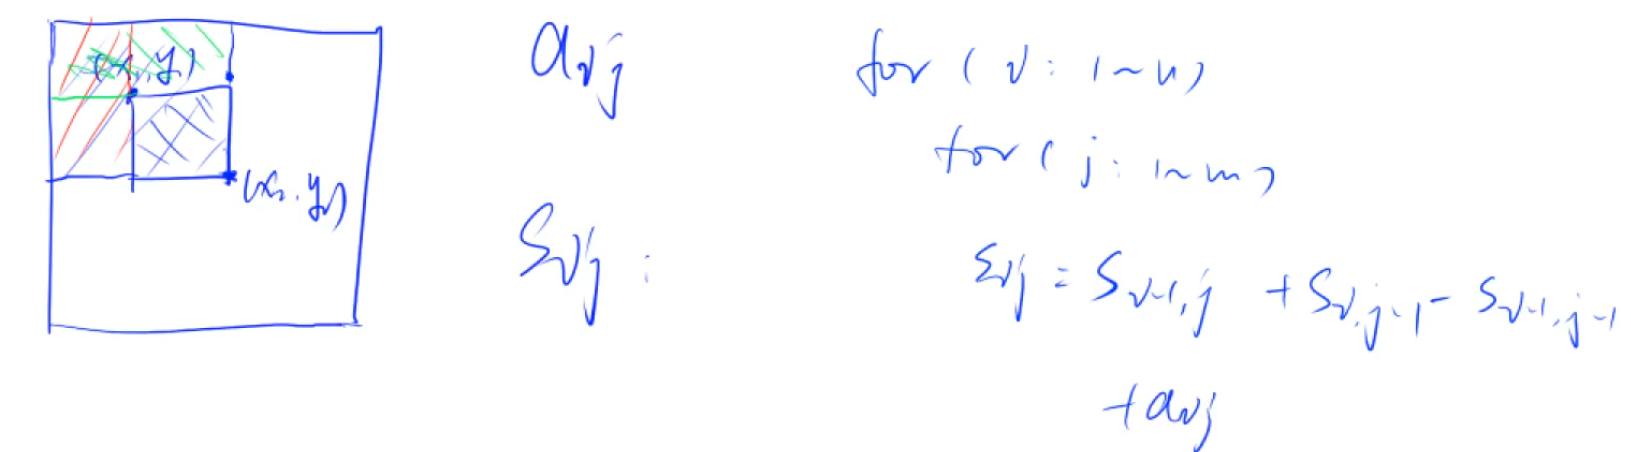 (x₁, y₁)
(x₂, y₂)
aij
Sij :
for ( i : 1~n )
for ( j : 1~m )
Sij = Si-1,j + Si,j-1 - Si-1,j-1
+ aij